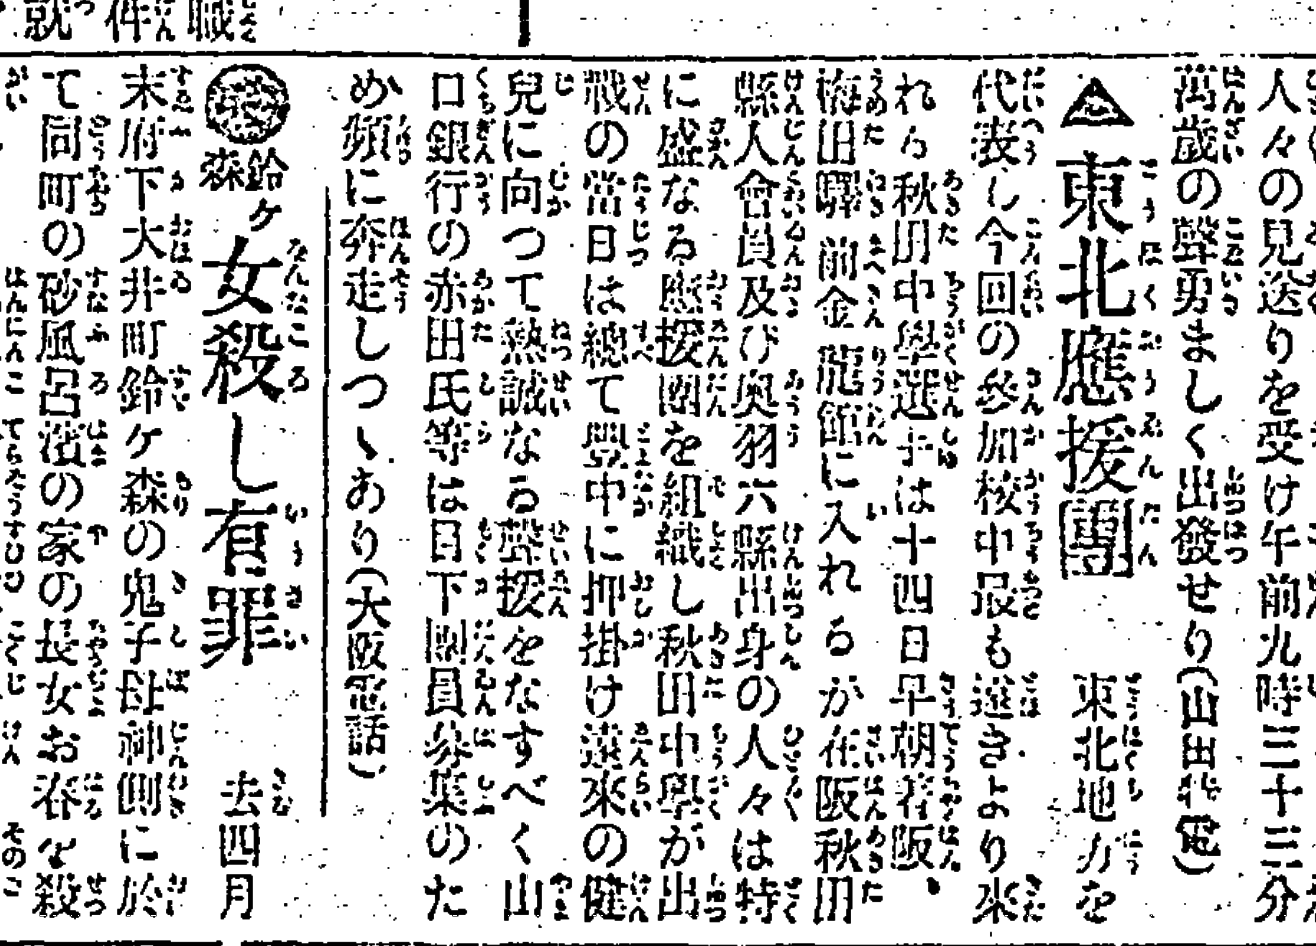 職
件
就
人々の見送りを受け午前九時三十三分
萬歳の聲勇ましく出發せり(山田特電)
東北應援團 東北地方を
代表し今回の參加校中最も遠きより來
れら秋田中學選手は十四日早朝着阪、
梅田驛前金龍館に入れるが在阪秋田
縣人會員及び奥羽六縣出身の人々は特
に盛なる應援團を組織し秋田中學が出
戰の當日は總て豐中に押掛け遠來の健
兒に向つて熱誠なる聲援をなすべく山
口銀行の赤田氏等は目下團員募集のた
め頻に奔走しつゝあり(大阪電話)
鈴ヶ森女殺し有罪 去四月
末府下大井町鈴ヶ森の鬼子母神側に於
て同町の砂風呂濱の家の長女お春を殺